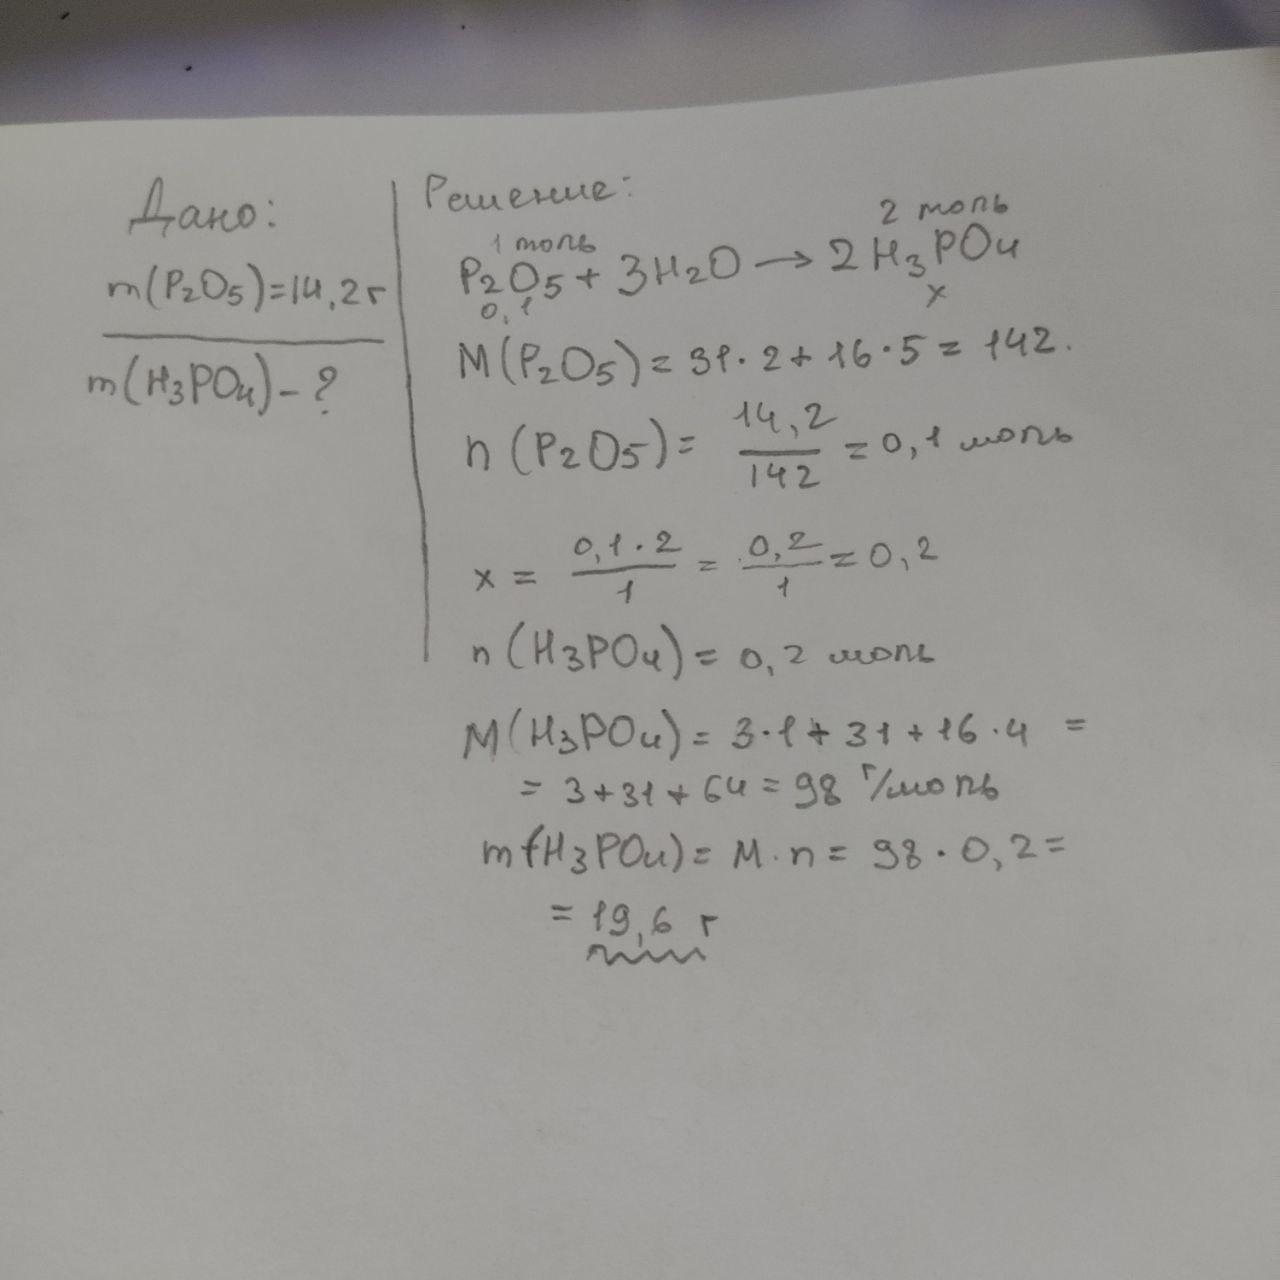 Дано:
m(P2O5)=14,2г
m(H3PO4)-?
Решение:
1 моль
2 моль
P2O5 + 3H2O → 2H3PO4
0,1
x
M(P2O5) = 31·2+16·5 = 142.
n(P2O5) = 14,2/142 = 0,1 моль
x = 0,1·2/1 = 0,2/1 = 0,2
n(H3PO4) = 0,2 моль
M(H3PO4) = 3·1+31+16·4 =
= 3+31+64 = 98 г/моль
m(H3PO4) = M·n = 98·0,2 =
= 19,6 г